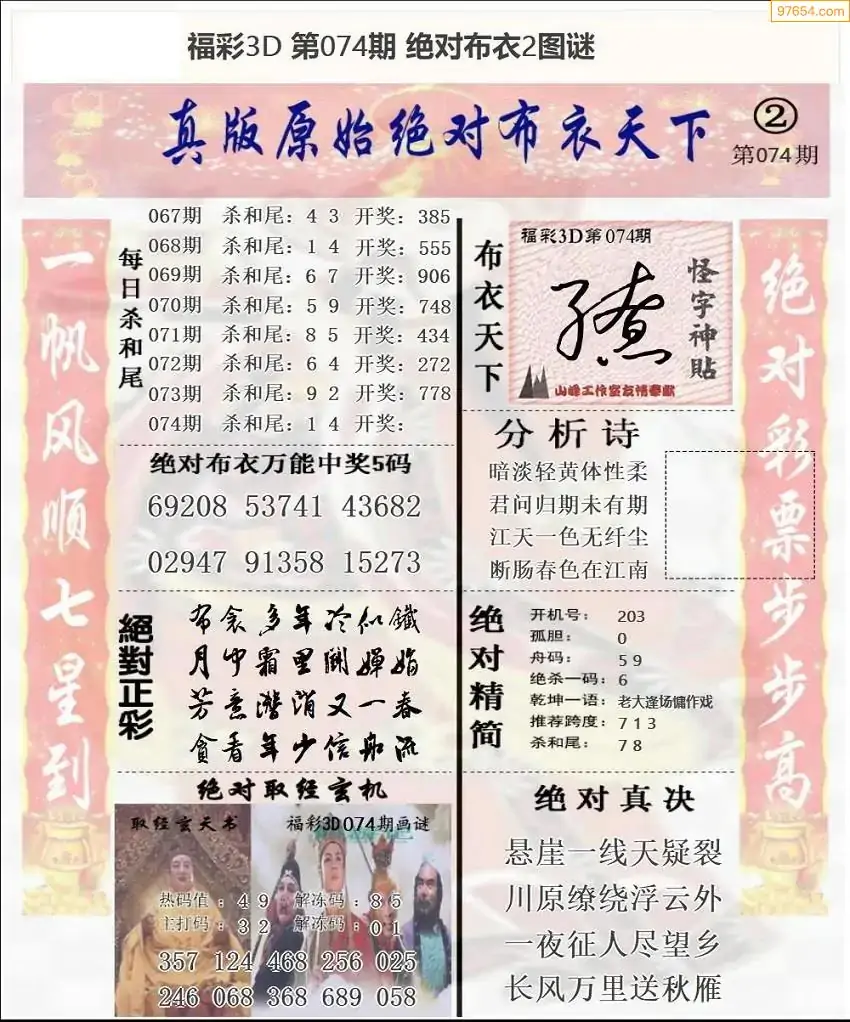 97654.com
福彩3D 第074期 绝对布衣2图谜
真版原始绝对布衣天下
②
第074期
一帆风顺七星到
每日杀和尾
067期 杀和尾：4 3 开奖：385
068期 杀和尾：1 4 开奖：555
069期 杀和尾：6 7 开奖：906
070期 杀和尾：5 9 开奖：748
071期 杀和尾：8 5 开奖：434
072期 杀和尾：6 4 开奖：272
073期 杀和尾：9 2 开奖：778
074期 杀和尾：1 4 开奖：
绝对布衣万能中奖5码
69208 53741 43682
02947 91358 15273
絕對正彩
布衾多年冷似鐵
月中霜里鬭嬋娟
芳意潛消又一春
貪看年少信船流
绝对取经玄机
取经玄天书
福彩3D074期画谜
热码值：4 9 解冻码：8 5
主打码：3 2 解冻码：0 1
357 124 468 256 025
246 068 368 689 058
布衣天下
福彩3D第074期
怪字神貼
山峰工作室友情奉献
分析诗
暗淡轻黄体性柔
君问归期未有期
江天一色无纤尘
断肠春色在江南
绝对精简
开机号：203
孤胆：0
舟码：5 9
绝杀一码：6
乾坤一语：老大逢场慵作戏
推荐跨度：7 1 3
杀和尾：7 8
绝对真决
悬崖一线天疑裂
川原缭绕浮云外
一夜征人尽望乡
长风万里送秋雁
绝对彩票步步高